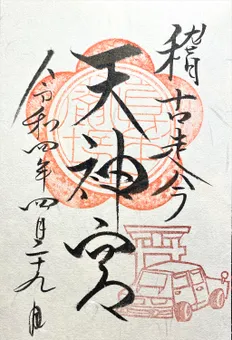 稽古去今
天神宮
令和四年四月二十九日